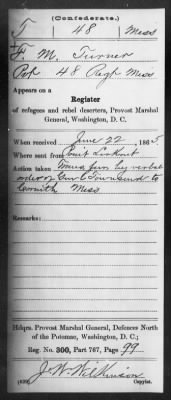 (Confederate.)
T 48 Miss
F. M. Turner
Pvt 48 Regt Miss
Appears on a
Register
of refugees and rebel deserters, Provost Marshal
General, Washington, D. C.
When received June 22, 1865
Where sent from Point Lookout
Action taken Trans furn by verbal
order of Genl Townsend to
Corinth Miss
Remarks:
Hdqrs. Provost Marshal General, Defences North
of the Potomac, Washington, D. C.;
Reg. No. 300, Part 767, page 99
J. W. Wilkinson
(639) Copyist.